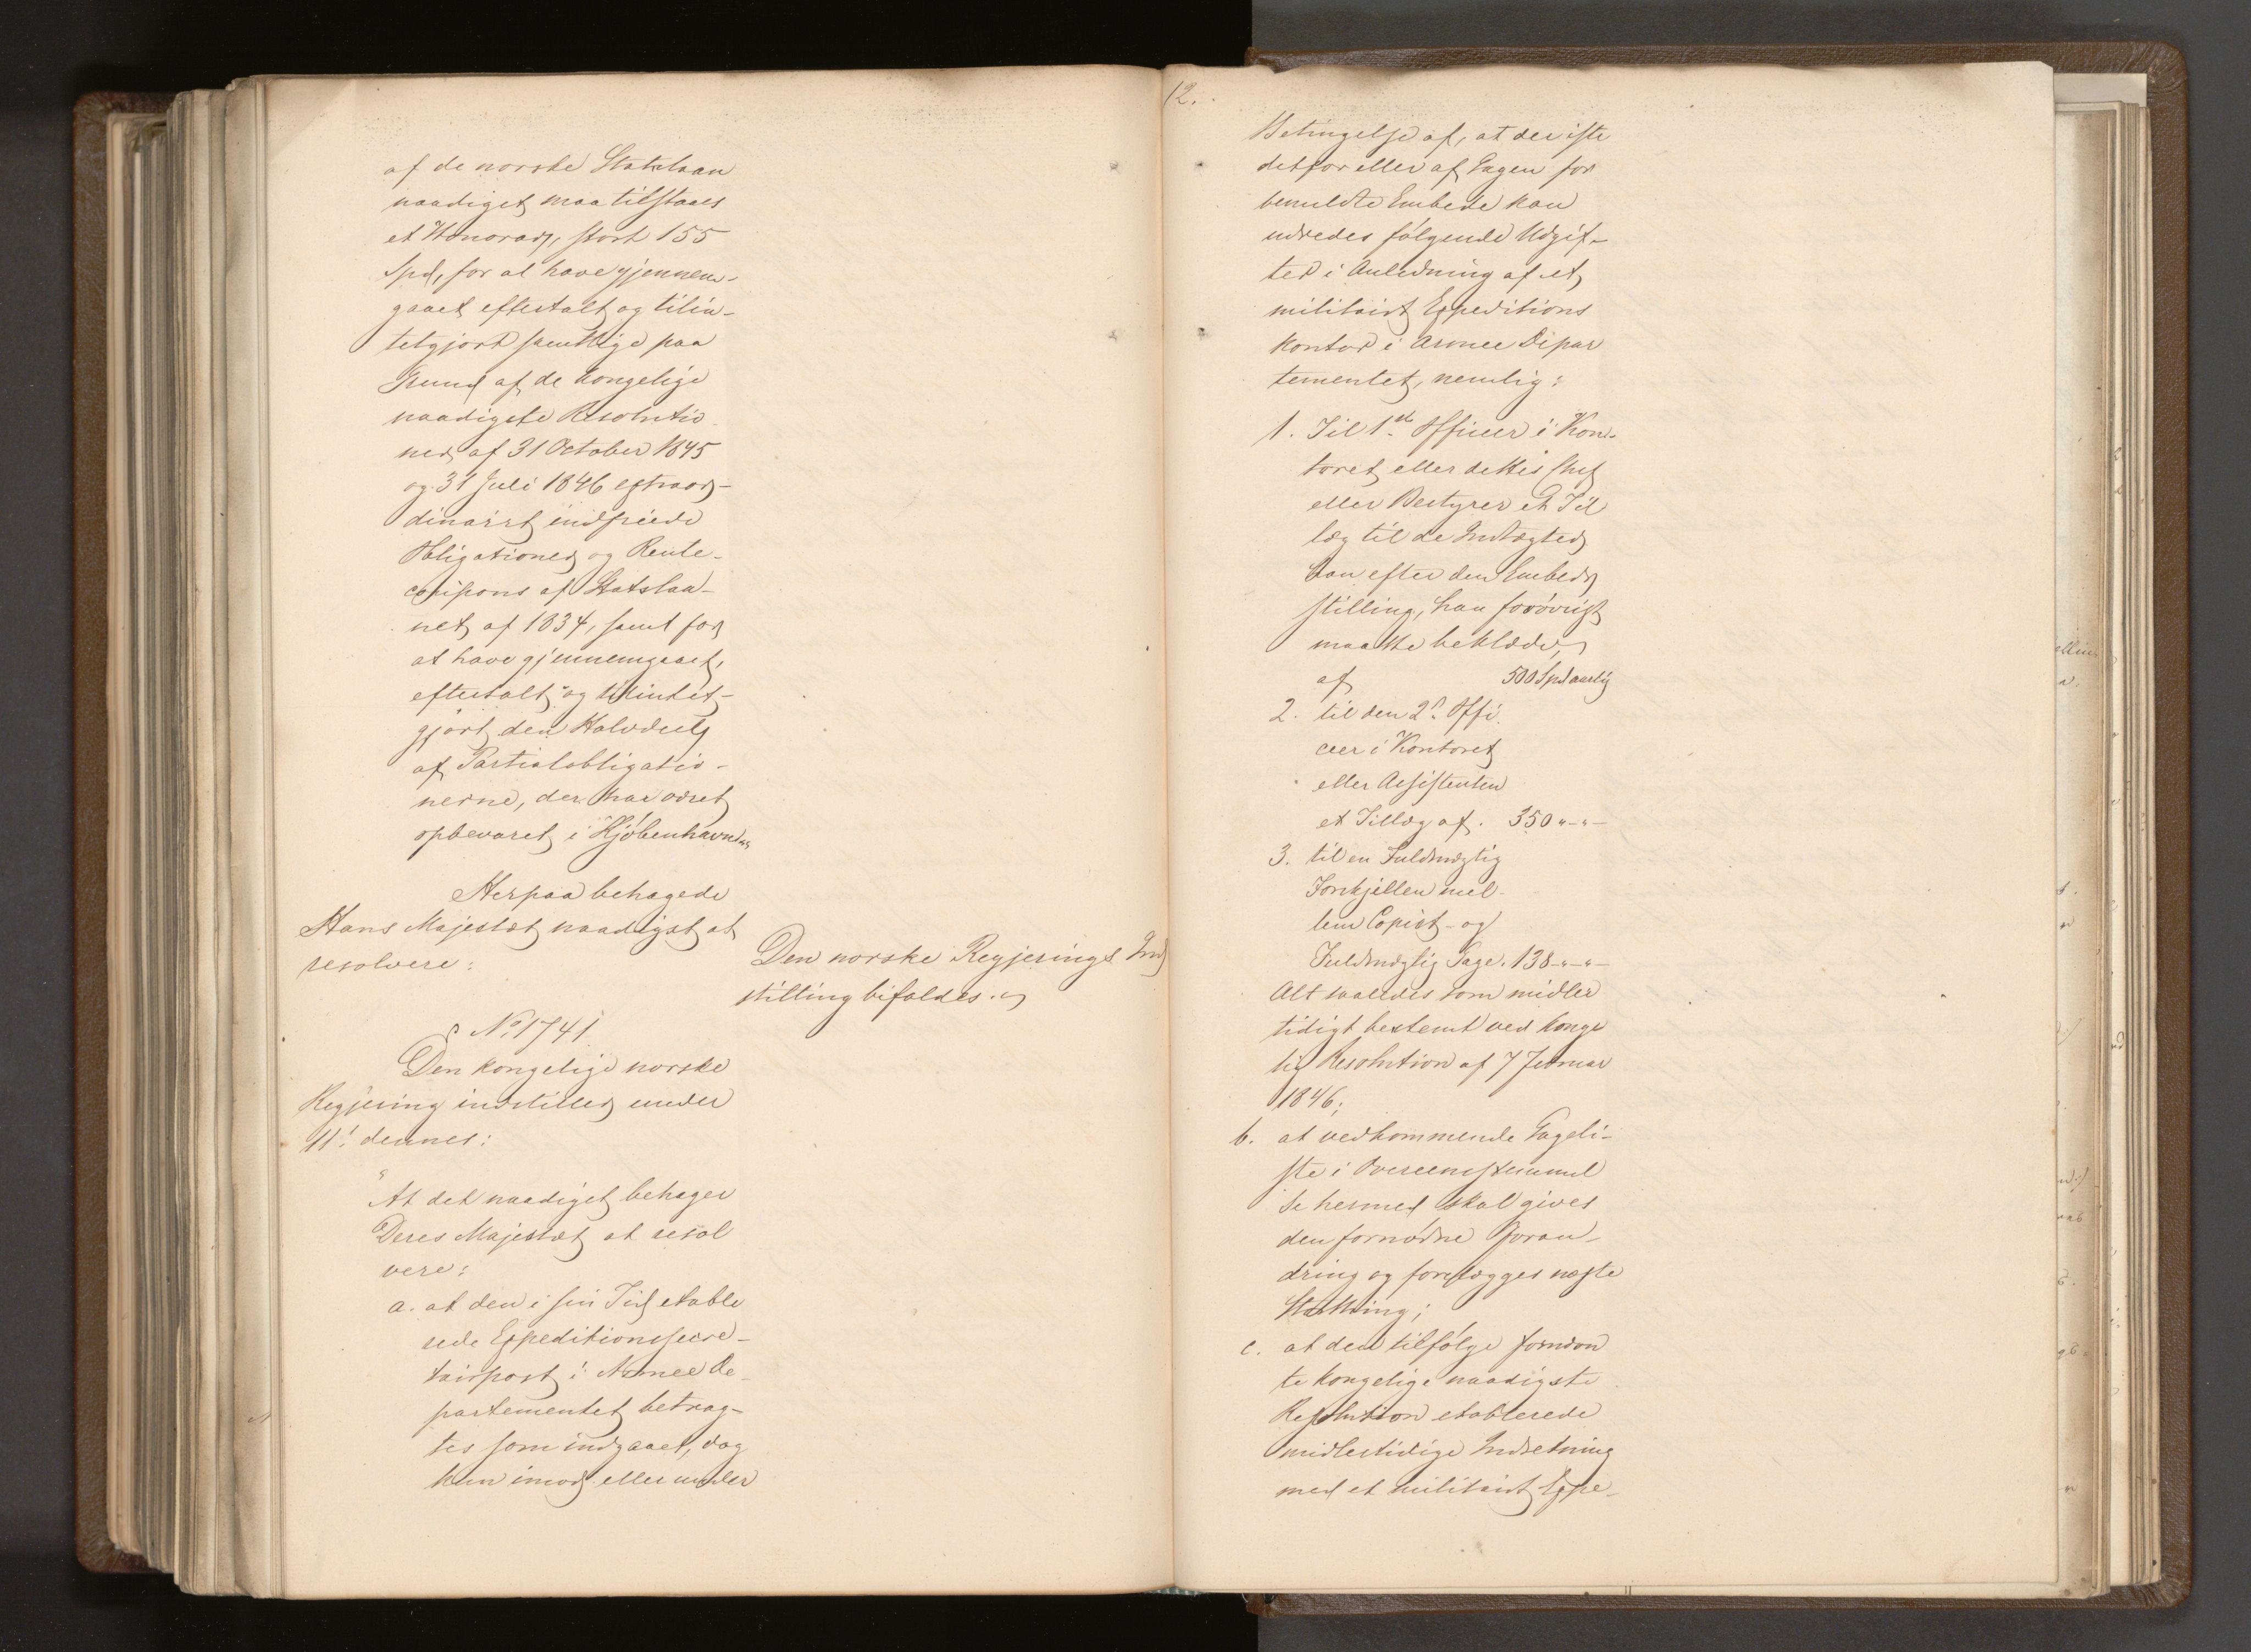 af de norske Statslaan
naadigst maa tilstaaes
et Honorar, stort 155
Spd, for at have gjennem-
gaaet eftertalt og tilin-
tetgjort samtlige paa
Grund af de kongelige
naadigste Resolutio
ner af 31 October 1845
og 31 Juli 1846 extraor-
dinairt indfriede
Obligationer og Rente-
coupons af Statslaa-
net af 1834, samt for
at have gjennemgaaet,
eftertalt og tilintet-
gjort den Halvdeel
af Partialobligatio-
nerne, der har været
opbevaret i Kjöbenhavn.
Herpaa behagede
Hans Majestæt naadigst at
resolvere:
Den norske Regjerings Ind
stilling bifaldes.
No. 1741
Den kongelige norske
Regjering indstiller under
11. dennes:
"At det naadigst behager
Deres Majestæt at resol
vere:
a. at den i sin Tid etable
rede Expeditionssecre-
tairpost i Armee De-
partementet betrag-
tes som indgaaet, dog
kun imod eller under
12.
Betingelse af, at der iste
detfor eller af Gagen for
bemeldte Embede kan
udredes fölgende Udgif-
ter i Anledning af et
militairt Expeditions
kontor i Armee Depar
tementet, nemlig:
1. Til 1ste Officer i Kon-
toret eller dettes Chef
eller Bestyrer et Til
læg til de Indtægter
han efter den Embeds
stilling, han forövrigt
maatte beklæde,
af 500 Spd aarlig
2. til den 2d. Offi
cer i Kontoret
eller Assistenten
et Tillæg af. 350 "-"-
3. til en Fuldmægtig
Forskjellen mel-
lem Copist- og
Fuldmægtig Gage. 138-"-"-
Alt saaledes som midler
tidigt bestemt ved konge
lig Resolution af 7 Februar
1846;
b. at vedkommende Gageli-
ste i Overeensstemmel
se hermed skal gives
den fornödne Foran-
dring og forelægges næste
Storthing;
c. at den tilfölge fornævn
te kongelige naadigste
Resolution etablerede
midlertidige Indretning
med et militairt Expe-